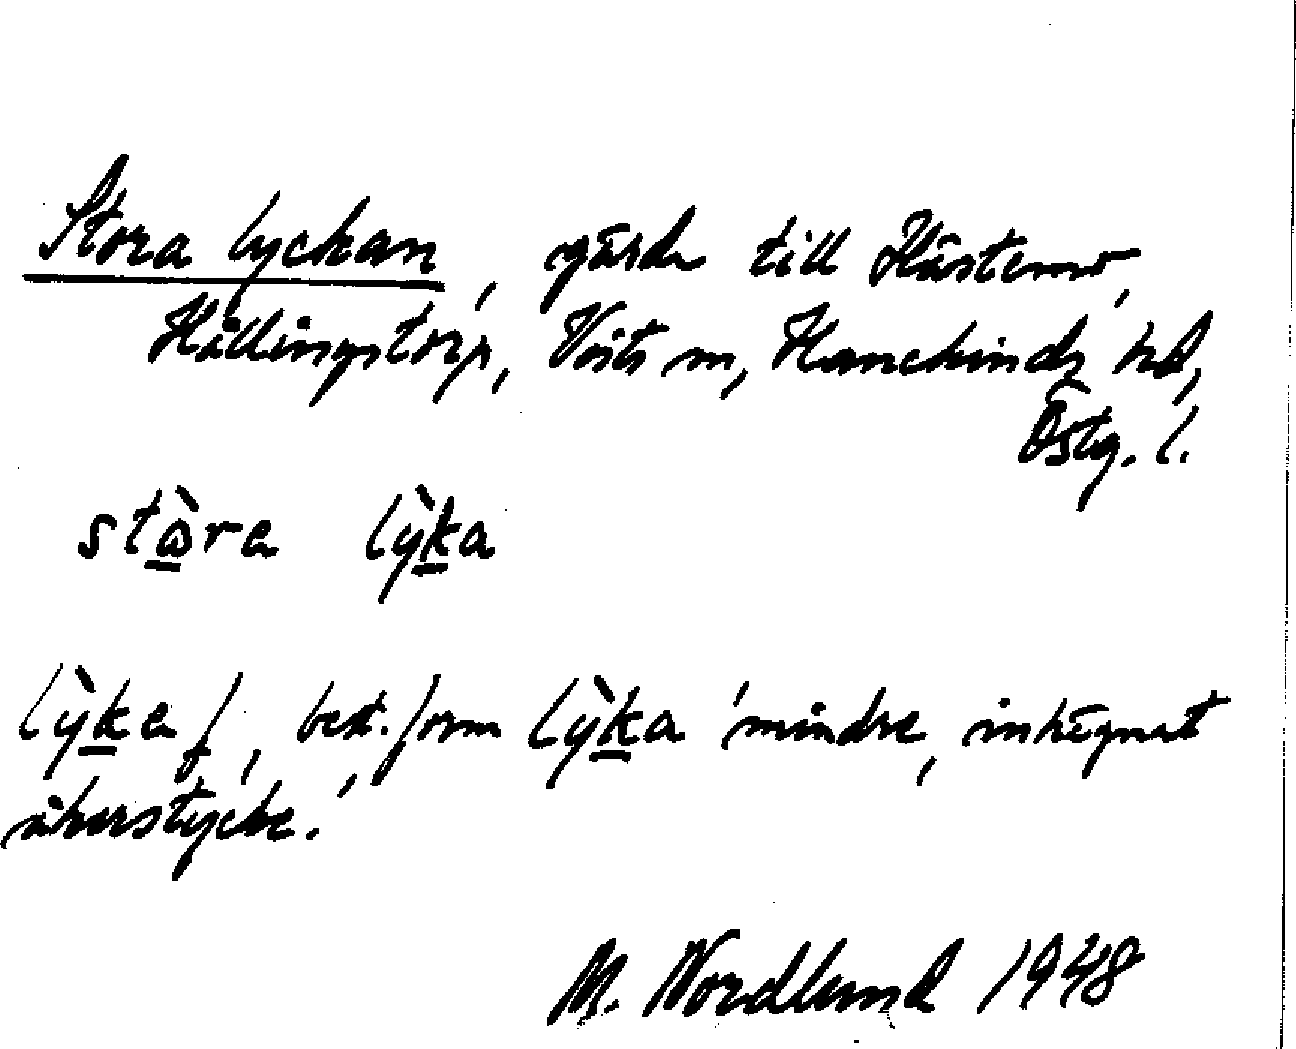 Stora lyckan, gärde till Hästemo,
Hållingstorp, Vists sn, Hanekinds hd,
Östg. l.
stὼra lỳka
lỳka f, best. form lỳka 'mindre, inhägnat
åkerstycke.'
M. Nordlund 1948